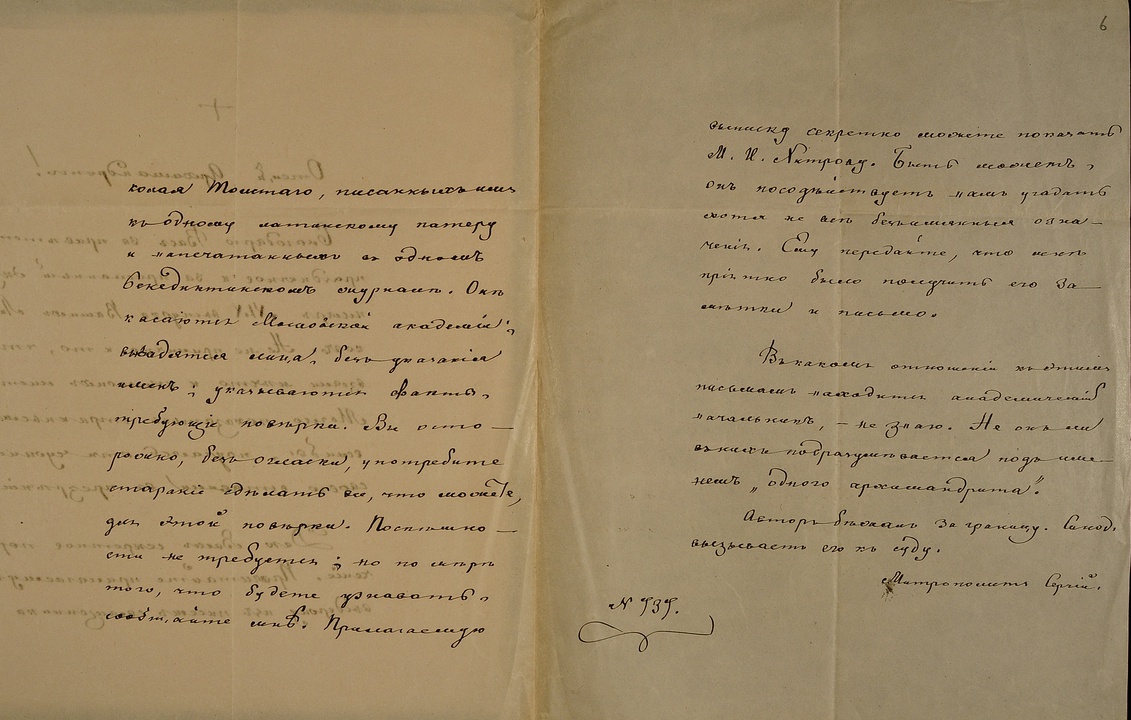 колая Толстаго, писанныхъ имъ
къ одному латинскому патеру
и напечатанныхъ въ одномъ
бенедиктинскомъ журналѣ. Онѣ
касаются Московской академіи;
вводятся лица, безъ указанія
именъ; указываются факты,
требующіе повѣрки. Вы осто-
рожно, безъ огласки, употребите
стараніе сдѣлать все, что можете,
для этой повѣрки. Поспѣшно-
сти не требуется; но по мѣрѣ
того, что будете узнавать,
сообщайте мнѣ. Прилагаемую
6
выписку секретно можете показать
М. И.
Быть можетъ,
онъ посодѣйствуетъ намъ угадать
хотя не всѣ безъимянныя озна-
ченія. Ему передайте, что мнѣ
пріятно было получить его за-
мѣтки и письмо.
Въ какомъ отношеніи къ этимъ
письмамъ находится академическій
начальникъ, – не знаю. Не онъ ли
въ нихъ подразумѣвается подъ име-
немъ „одного архимандрита“.
Авторъ бѣжалъ за границу. Синод.
вызываетъ его къ суду.
Митрополитъ Сергій.
N 939.